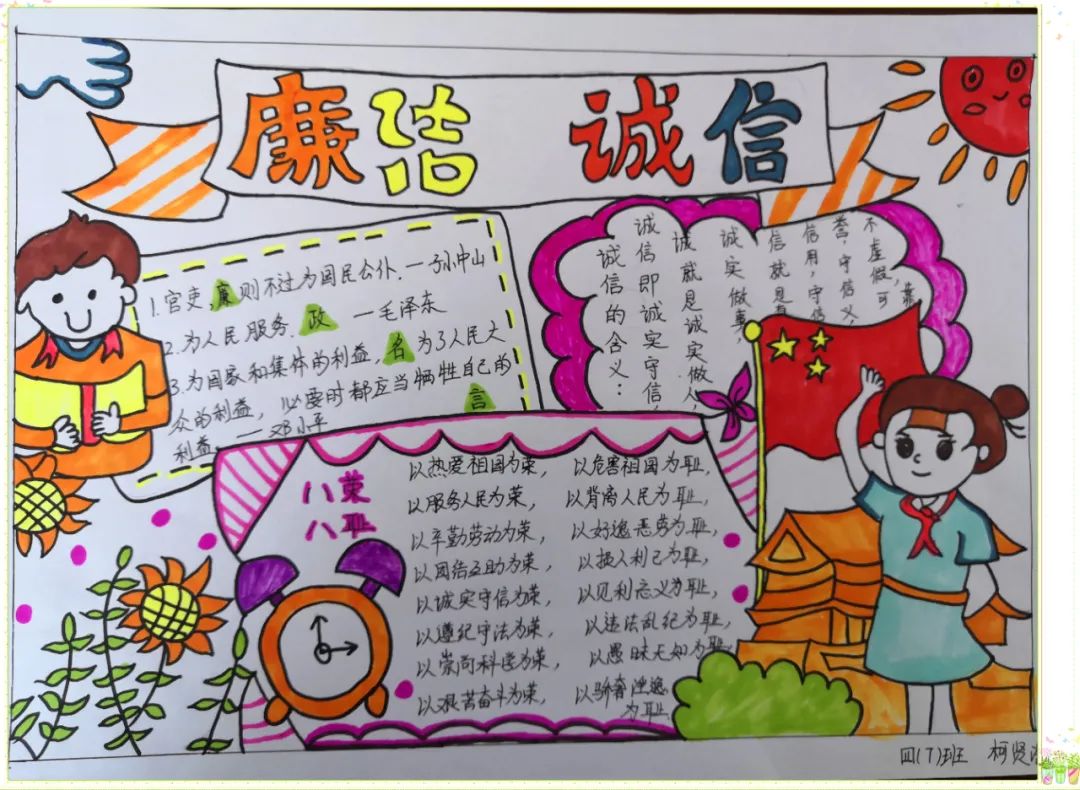 廉洁 诚信
1.官吏,廉则不过为国民公仆.一孙中山
2.为人民服务.政 一毛泽东
3.为国家和集体的利益,名为了人民大
众的利益，必要时都应当牺牲自己的
言
利益。一一邓小平
诚信的含义：
诚信即诚实守信，
诚就是诚实做人，
诚实做事，
信就是有
信用,守信
誉,守信义,
不虚假,可
靠
八荣
八耻
以热爱祖国为荣，以危害祖国为耻，
以服务人民为荣，以背离人民为耻，
以辛勤劳动为荣，以好逸恶劳为耻，
以团结互助为荣，以损人利己为耻，
以诚实守信为荣，以见利忘义为耻，
以遵纪守法为荣，以违法乱纪为耻，
以崇尚科学为荣，以愚昧无知为耻，
以艰苦奋斗为荣，以骄奢淫逸
为耻
四(7)班 柯贤